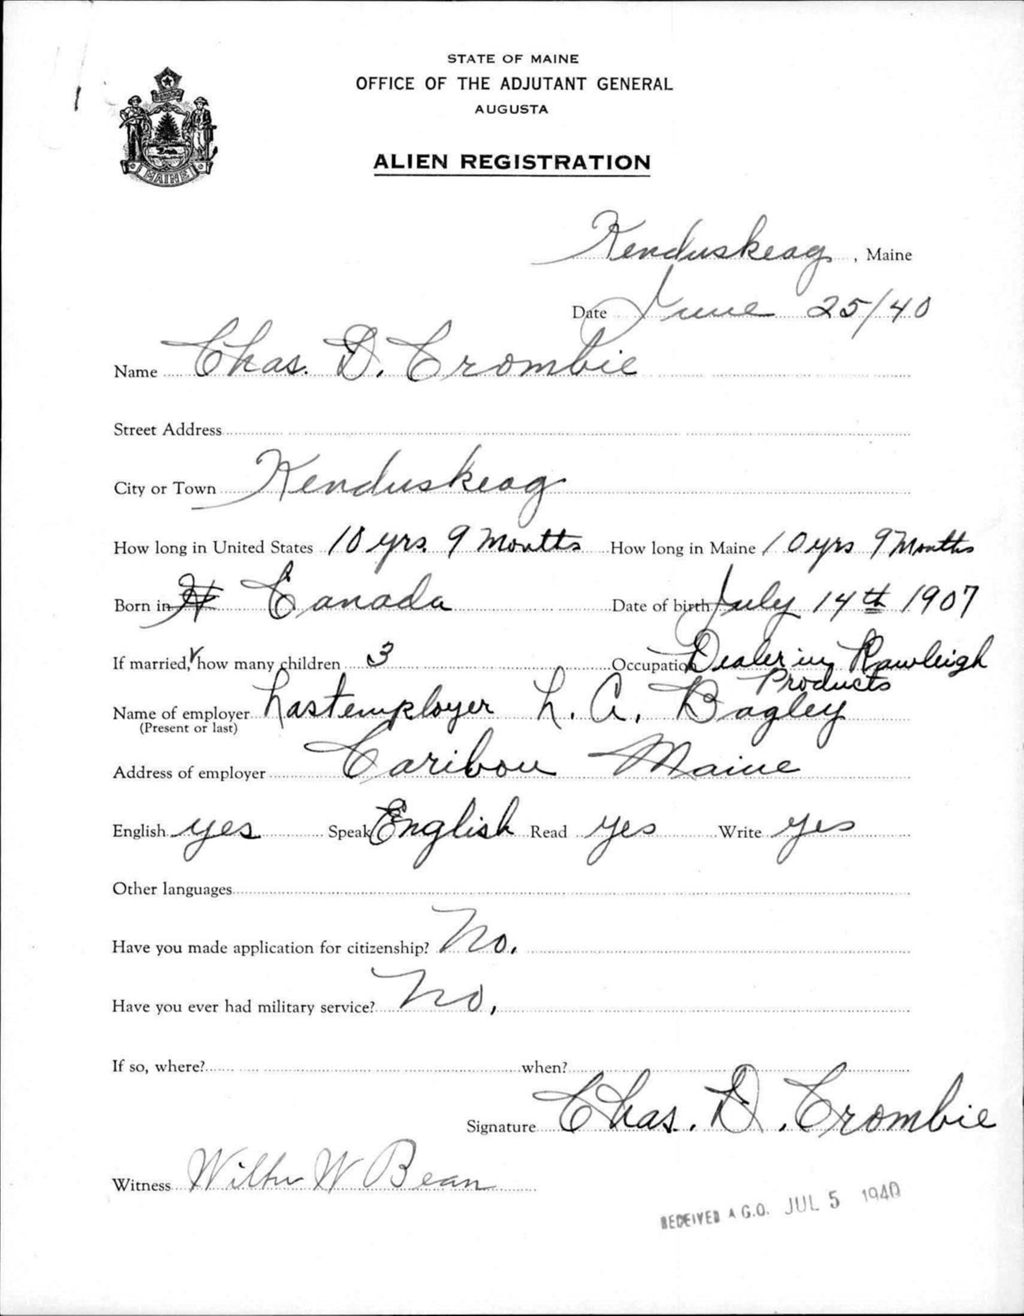 STATE OF MAINE
OFFICE OF THE ADJUTANT GENERAL
AUGUSTA
MAINE
ALIEN REGISTRATION
Kenduskeag, Maine
Date June 25/40
Name Chas. D. Crombie
Street Address
City or Town Kenduskeag
How long in United States 10 yrs. 9 Months How long in Maine 10 yrs 9 Months
Born in Canada Date of birth July 14th 1907
If married, how many children 3 Occupation Dealer in Rawleigh
Products
Name of employer Last employer L. A. Bagley
(Present or last)
Address of employer Caribou Maine
English yes Speak English Read yes Write yes
Other languages
Have you made application for citizenship? No.
Have you ever had military service? No.
If so, where? when?
Signature Chas. D. Crombie
Witness W Bean
RECEIVED A.G.O. JUL 5 1940